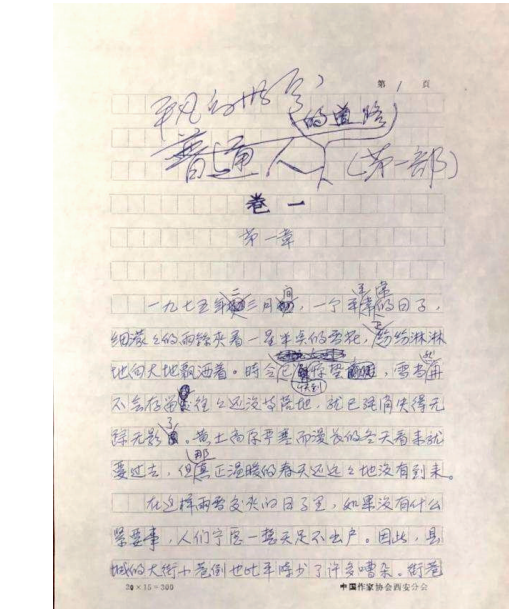 第 1 页
平凡的世界
的道路
普通人
(第一部)
卷一
第一章
一九七五年二三月间,一个平平常常的日子,
细濛々的雨丝夹着一星半点的雪花,纷纷淋淋
地向大地飘洒着。时令已快到惊蛰,雪当然再
不会存留,往々还没等落地,就已经消失得无
踪无影了。黄土高原严寒而漫长的冬天看来就
要过去,但那真正温暖的春天还远々地没有到来。
在这样雨雪交夹的日子里,如果没有什么
紧要事,人们宁愿一整天足不出户。因此,县
城的大街小巷倒也比平时少了许多嘈杂。街巷
20×15=300
中国作家协会西安分会